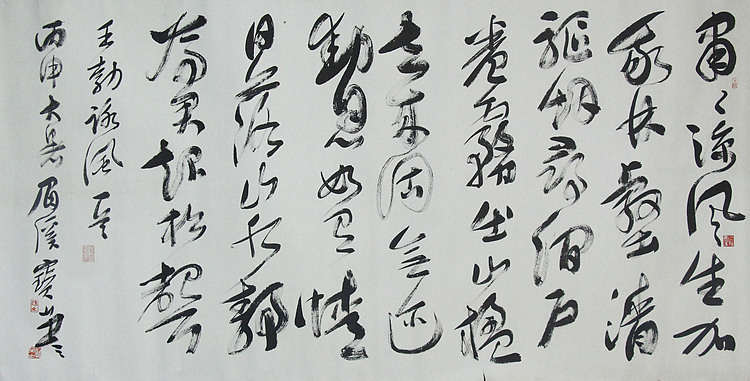 肅肅凉風生加
我林壑清
驅烟尋澗戶
卷霧出山楹
去來固無迹
動息如有情
日落山水静
為君起松聲
王勃詠風一首
丙申大暑眉溪寶